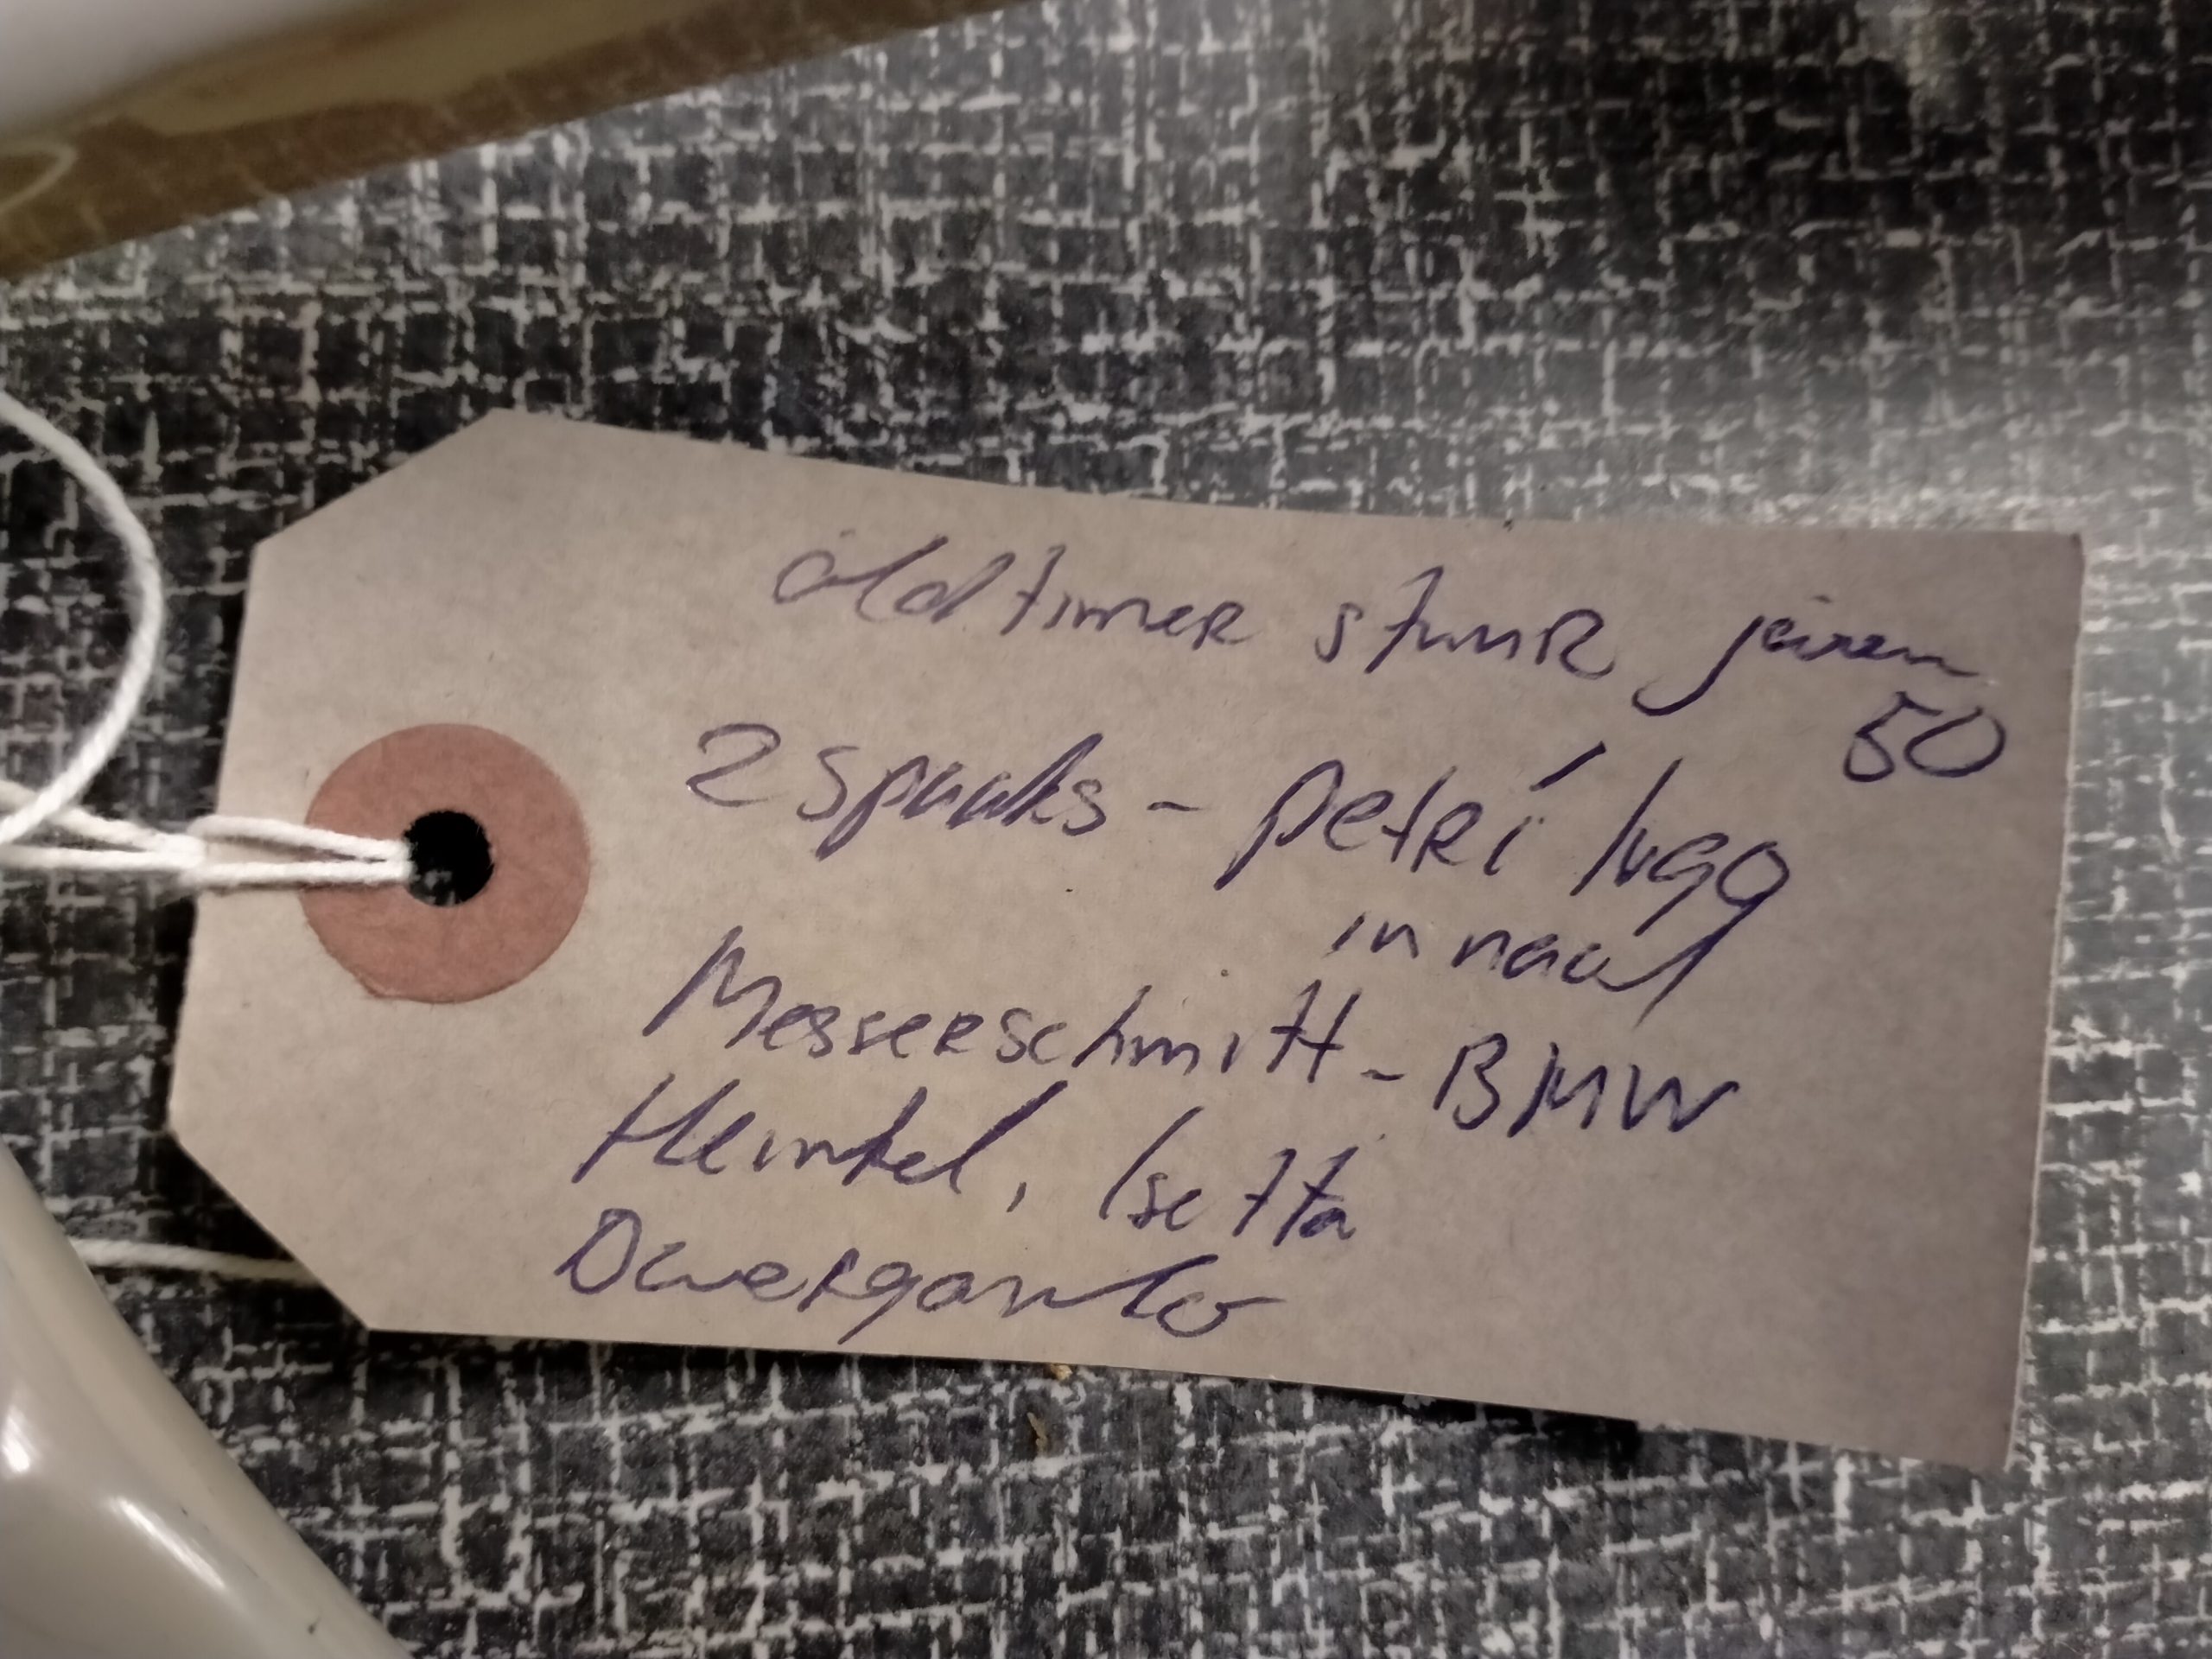 oldtimer stuur jaren
50
2 spaaks - petri / logo
in naaf
Messerschmitt - BMW
Heinkel, Isetta
Dwergauto